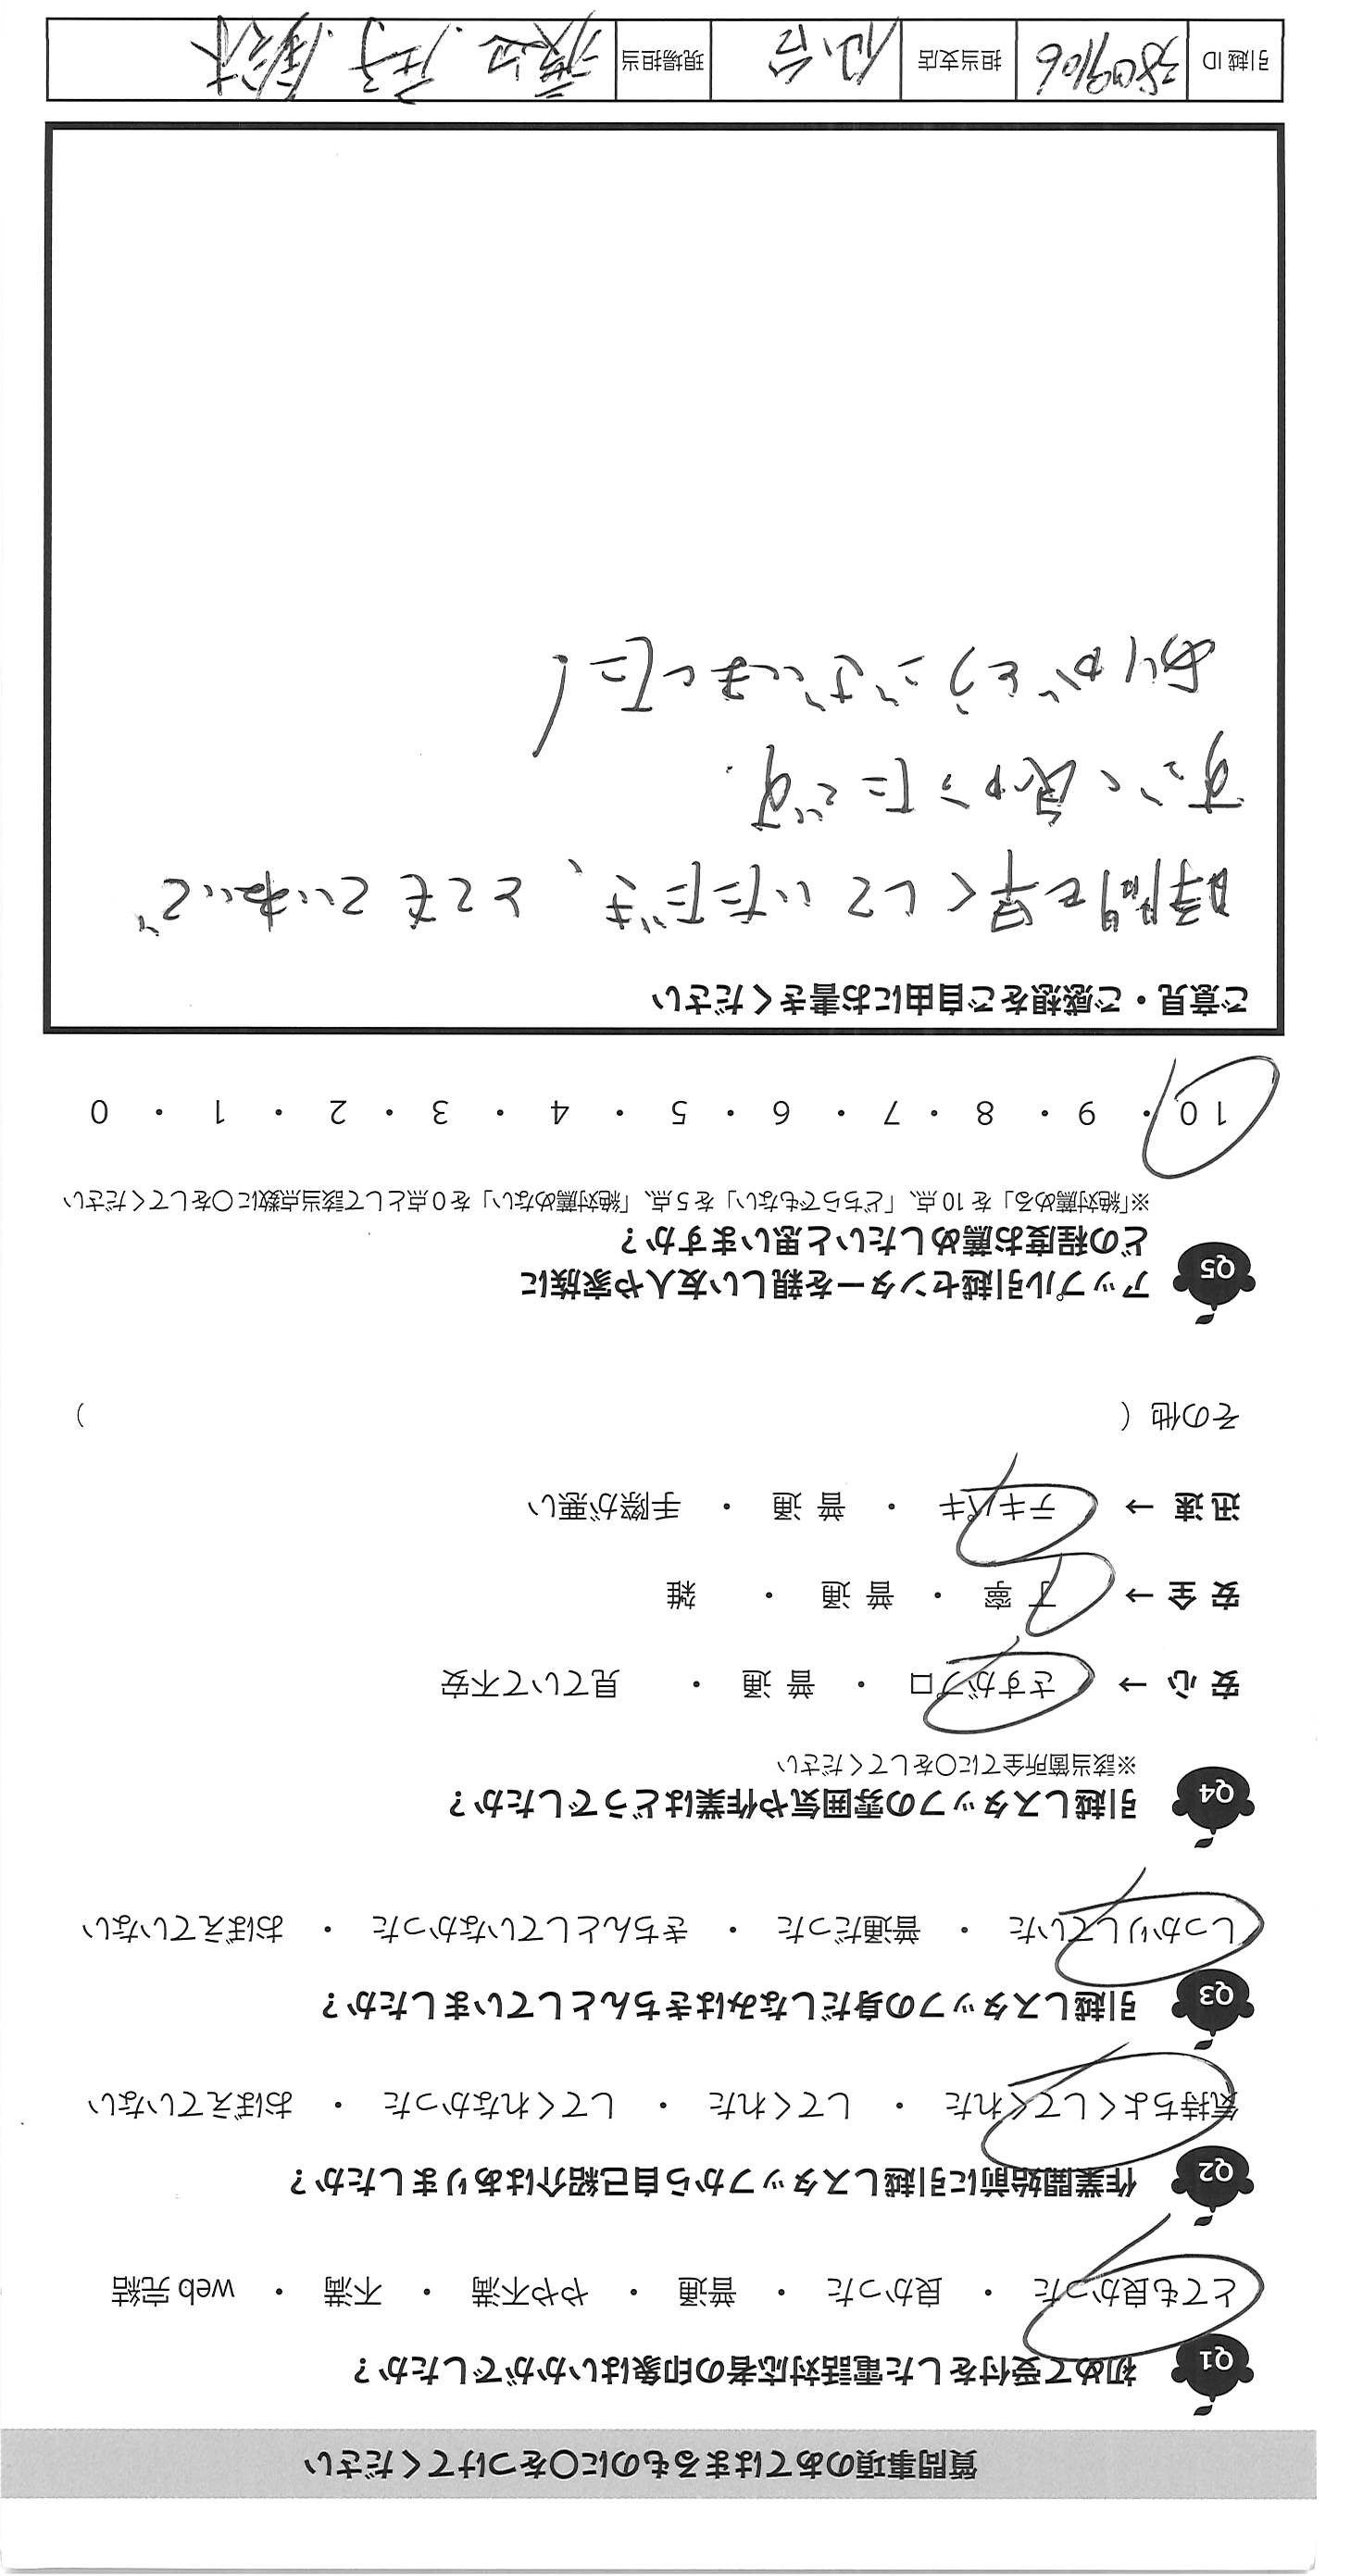 質問事項のあてはまるものに〇をつけてください
Q1 初めて受付をした電話対応者の印象はいかがでしたか？
とても良かった ・ 良かった ・ 普通 ・ やや不満 ・ 不満 ・ web 完結
Q2 作業開始前に引越しスタッフから自己紹介はありましたか？
気持ちよくしてくれた ・ してくれた ・ してくれなかった ・ おぼえていない
Q3 引越しスタッフの身だしなみはきちんとしていましたか？
しっかりしていた ・ 普通だった ・ きちんとしていなかった ・ おぼえていない
Q4 引越しスタッフの雰囲気や作業はどうでしたか？
※該当箇所全てに〇をしてください
安 心 → さすがプロ ・ 普 通 ・ 見ていて不安
安 全 → 丁 寧 ・ 普 通 ・ 雑
迅 速 → テキパキ ・ 普 通 ・ 手際が悪い
その他（ ）
Q5 アップル引越センターを親しい友人や家族に
どの程度お薦めしたいと思いますか？
※「絶対薦める」を 10 点、「どちらでもない」を 5 点、「絶対薦めない」を 0 点として該当点数に〇をしてください
10 ・ 9 ・ 8 ・ 7 ・ 6 ・ 5 ・ 4 ・ 3 ・ 2 ・ 1 ・ 0
ご意見・ご感想をご自由にお書きください
時間も早くしていただき、とてもていねいで
すごく良かったです。
ありがとうございました！
引越 ID 3809106 担当支店 仙台 現場担当 渡辺 鈴木